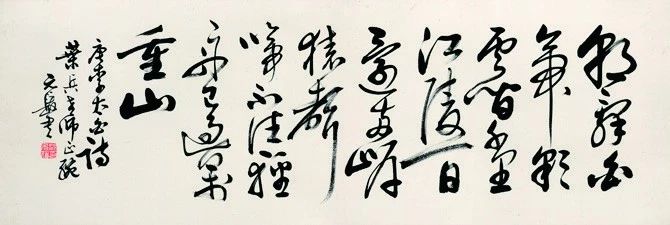 朝辭白
帝彩
雲間千里
江陵一日
還兩岸
猿聲
啼不住輕
舟已過萬
重山
唐李太白詩
葉兵老師正腕
書